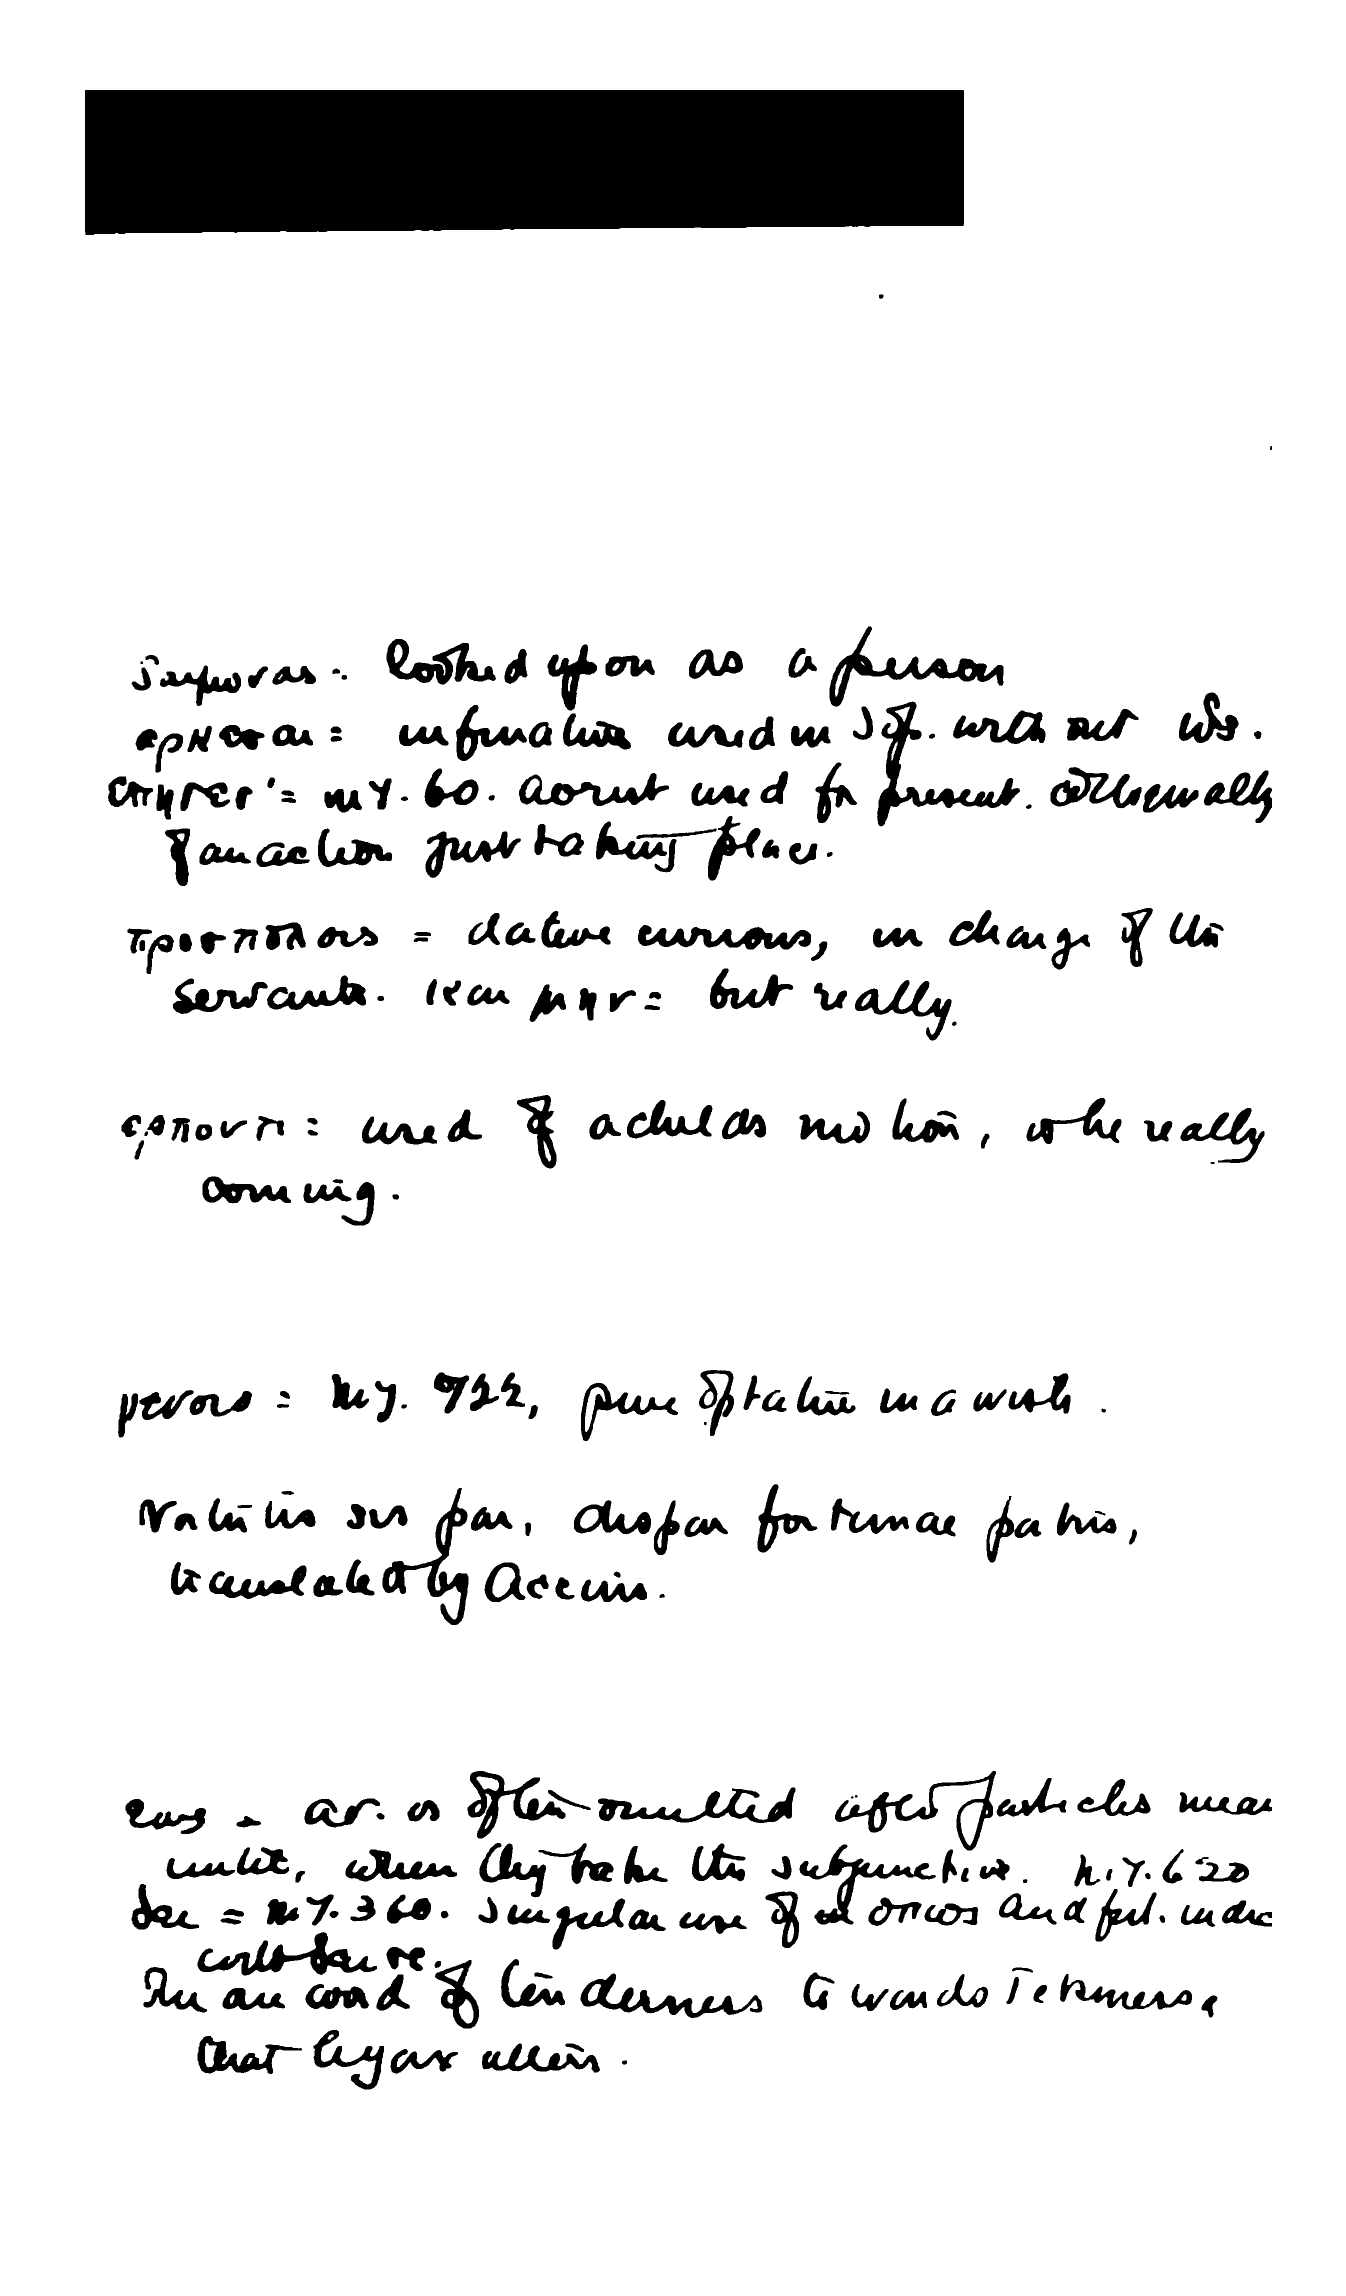 looked upon as a person
αρκεσαι = infinative used in Sop. without ws.
επηνεσ' = M.T. 60. aorist used for present. colloquially
of an action just taking place.
προσπολοις = dative curious, in charge of the
servants. και μην = but really.
ερποντι = used of a childs motion, is he really
coming.
γενοιο = M.T. 722, pure optative in a wish.
sis par, dispar fortunae patris,
translated by Accius.
εως = αν. is often omitted after particles mean
until, when they take the subjunctive. M.T. 620
δει = M.T. 360. singular use of οπως and fut. indic
with δει σε.
word of tenderness towards Tekmessa
that Ajax utters.